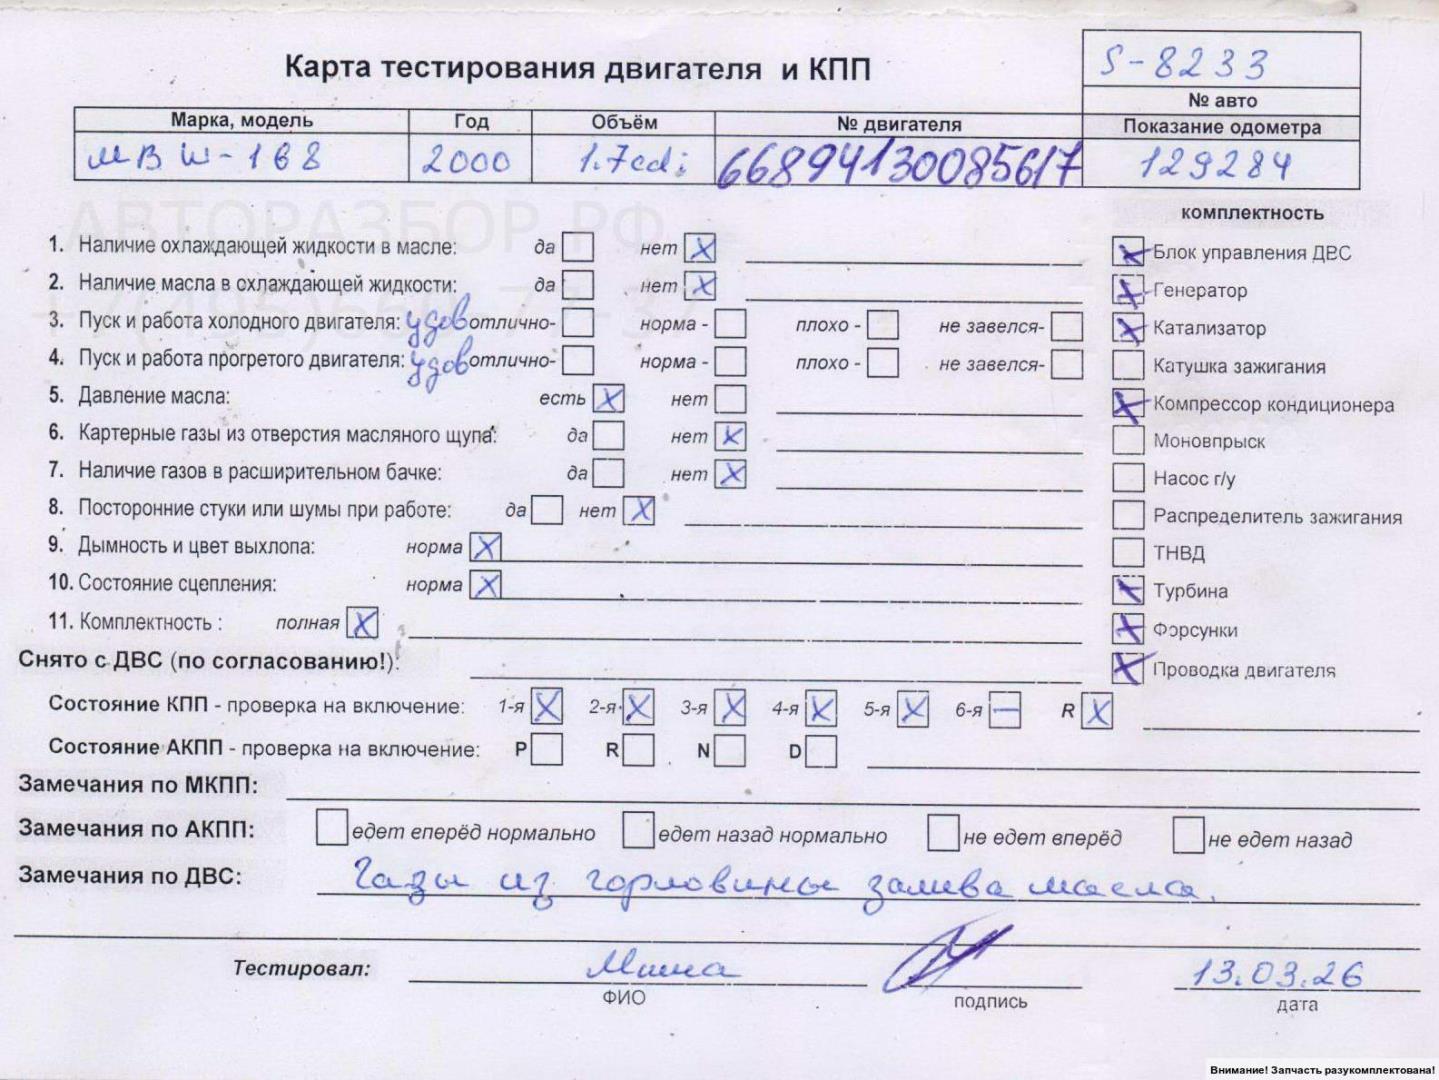 S-8233
Карта тестирования двигателя и КПП
№ авто
Марка, модель Год Объём № двигателя Показание одометра
МВ W-168 2000 1.7cdi 66894130085617 129284
АВТОРАЗБОР.РФ
комплектность
1. Наличие охлаждающей жидкости в масле: да нет X
Блок управления ДВС
2. Наличие масла в охлаждающей жидкости: да нет X
Генератор
3. Пуск и работа холодного двигателя: удов отлично- норма - плохо - не завелся-
Катализатор
4. Пуск и работа прогретого двигателя: удов отлично- норма - плохо - не завелся-
Катушка зажигания
5. Давление масла: есть X нет
Компрессор кондиционера
6. Картерные газы из отверстия масляного щупа: да нет X
Моновпрыск
7. Наличие газов в расширительном бачке: да нет X
Насос г/у
8. Посторонние стуки или шумы при работе: да нет X
Распределитель зажигания
9. Дымность и цвет выхлопа: норма X
ТНВД
10. Состояние сцепления: норма X
Турбина
11. Комплектность : полная X
Форсунки
Снято с ДВС (по согласованию!):
Проводка двигателя
Состояние КПП - проверка на включение: 1-я X 2-я X 3-я X 4-я X 5-я X 6-я — R X
Состояние АКПП - проверка на включение: P R N D
Замечания по МКПП:
Замечания по АКПП: едет вперёд нормально едет назад нормально не едет вперёд не едет назад
Замечания по ДВС: Газы из горловины залива масла.
Тестировал: Миша 13.03.26
ФИО подпись дата
Внимание! Запчасть разукомплектована!